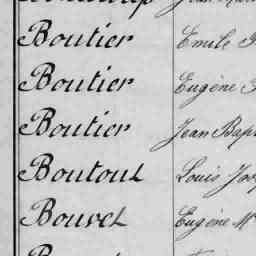 Boutier Emile
Boutier Eugène
Boutier Jean Bap
Boutout Louis Jos
Bouvet Eugène M